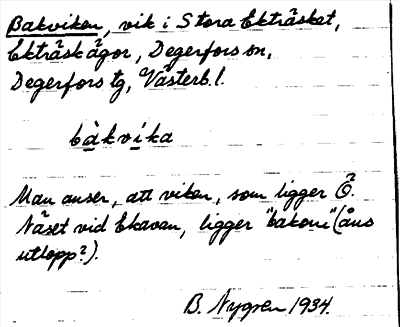 Bakviken, vik i Stora Ekträsket,
Ekträsk ägor, Degerfors sn,
Degerfors tg, Västerb. l.
bàkvíka
Man anser, att viken, som ligger Ö.
Näset vid Ekavan, ligger "bakom" (åns
utlopp?).
B. Nygren 1934.